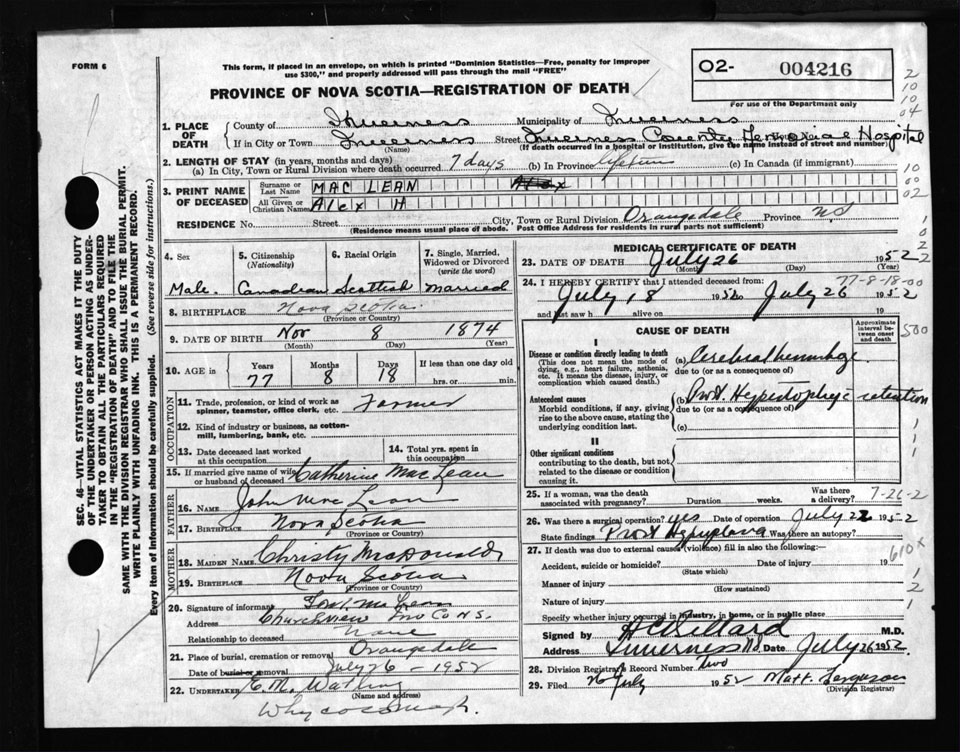 FORM 6
This form, if placed in an envelope, on which is printed "Dominion Statistics—Free, penalty for improper
use $300," and properly addressed will pass through the mail "FREE"
PROVINCE OF NOVA SCOTIA—REGISTRATION OF DEATH
O2- 004216
For use of the Department only
2
10
10
04
1. PLACE OF DEATH
County of Inverness Municipality of Inverness
If in City or Town Inverness Street Inverness County Memorial Hospital
(Name) (If death occurred in a hospital or institution, give the name instead of street and number)
2. LENGTH OF STAY (in years, months and days)
(a) In City, Town or Rural Division where death occurred 7 days (b) In Province lifetime (c) In Canada (if immigrant)
10
00
02
3. PRINT NAME OF DECEASED
Surname or Last Name MAC LEAN Alex
All Given or Christian Names Alex H
RESIDENCE No. Street City, Town or Rural Division Orangedale Province NS
(Residence means usual place of abode. Post Office Address for residents in rural parts not sufficient)
SEC. 46—VITAL STATISTICS ACT MAKES IT THE DUTY
OF THE UNDERTAKER OR PERSON ACTING AS UNDER-
TAKER TO OBTAIN ALL THE PARTICULARS REQUIRED
IN THE "REGISTRATION OF DEATH" AND TO FILE THE
SAME WITH THE DIVISION REGISTRAR WHO SHALL ISSUE THE BURIAL PERMIT.
WRITE PLAINLY WITH UNFADING INK. THIS IS A PERMANENT RECORD.
Every item of information should be carefully supplied. (See reverse side for instructions.)
4. Sex
Male
5. Citizenship
(Nationality)
Canadian
6. Racial Origin
Scottish
7. Single, Married,
Widowed or Divorced
(write the word)
Married
8. BIRTHPLACE Nova Scotia
(Province or Country)
9. DATE OF BIRTH Nov 8 1874
(Month) (Day) (Year)
10. AGE in
Years Months Days If less than one day old
77 8 18 hrs. or min.
OCCUPATION
11. Trade, profession, or kind of work as
spinner, teamster, office clerk, etc. Farmer
12. Kind of industry or business, as cotton-
mill, lumbering, bank, etc.
13. Date deceased last worked
at this occupation
14. Total yrs. spent in
this occupation
15. If married give name of wife
or husband of deceased Catherine MacLean
FATHER
16. NAME John MacLean
17. BIRTHPLACE Nova Scotia
(Province or Country)
MOTHER
18. MAIDEN NAME Christy MacDonald
19. BIRTHPLACE Nova Scotia
(Province or Country)
20. Signature of informant
Address Churchview Inv Co N.S.
Relationship to deceased None
21. Place of burial, cremation or removal Orangedale
Date of burial or removal July 26 - 1952
22. UNDERTAKER
(Name and address)
Whycocomagh
MEDICAL CERTIFICATE OF DEATH
23. DATE OF DEATH July 26 1952
(Month) (Day) (Year)
24. I HEREBY CERTIFY that I attended deceased from: 77-8-18-00
July 18 1952 to July 26 1952
and last saw h alive on 19
CAUSE OF DEATH
Approximate
interval be-
tween onset
and death
500
I
Disease or condition directly leading to death
(This does not mean the mode of
dying, e.g., heart failure, asthenia,
etc. It means the disease, injury, or
complication which caused death.)
(a) Cerebral hemorrhage
due to (or as a consequence of)
Antecedent causes
Morbid conditions, if any, giving
rise to the above cause, stating the
underlying condition last.
(b) Prost. Hypertrophy & retention
due to (or as a consequence of)
(c)
II
Other significant conditions
contributing to the death, but not
related to the disease or condition
causing it.
25. If a woman, was the death
associated with pregnancy? Duration weeks. Was there
a delivery?
7-26-2
26. Was there a surgical operation? yes Date of operation July 22 1952
State findings Was there an autopsy?
27. If death was due to external causes (violence) fill in also the following:
610x
Accident, suicide or homicide? Date of injury 19
(State which)
Manner of injury
(How sustained)
Nature of injury
Specify whether injury occurred in industry, in home, or in public place
Signed by M.D.
Address Inverness N.S. Date July 26 1952
28. Division Registrar's Record Number Two
29. Filed 26 July 1952 Matt. Ferguson
(Division Registrar)